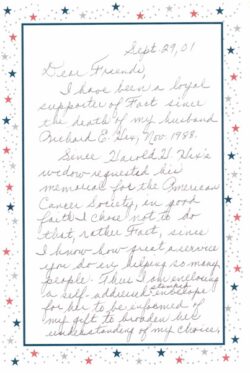 Sept 29, 01
Dear Friends,
I have been a loyal
supporter of Fact since
the death of my husband
Richard E. Hix, Nov. 1988.
Since Harold H. Hix's
widow requested his
memorial for the American
Cancer Society, in good
faith I chose not to do
that, rather Fact, since
I know how great a service
you do in helping so many
people. Thus I am enclosing
a self-addressed stamped envelope
for her to be informed of
my gift to broaden her
understanding of my choice,